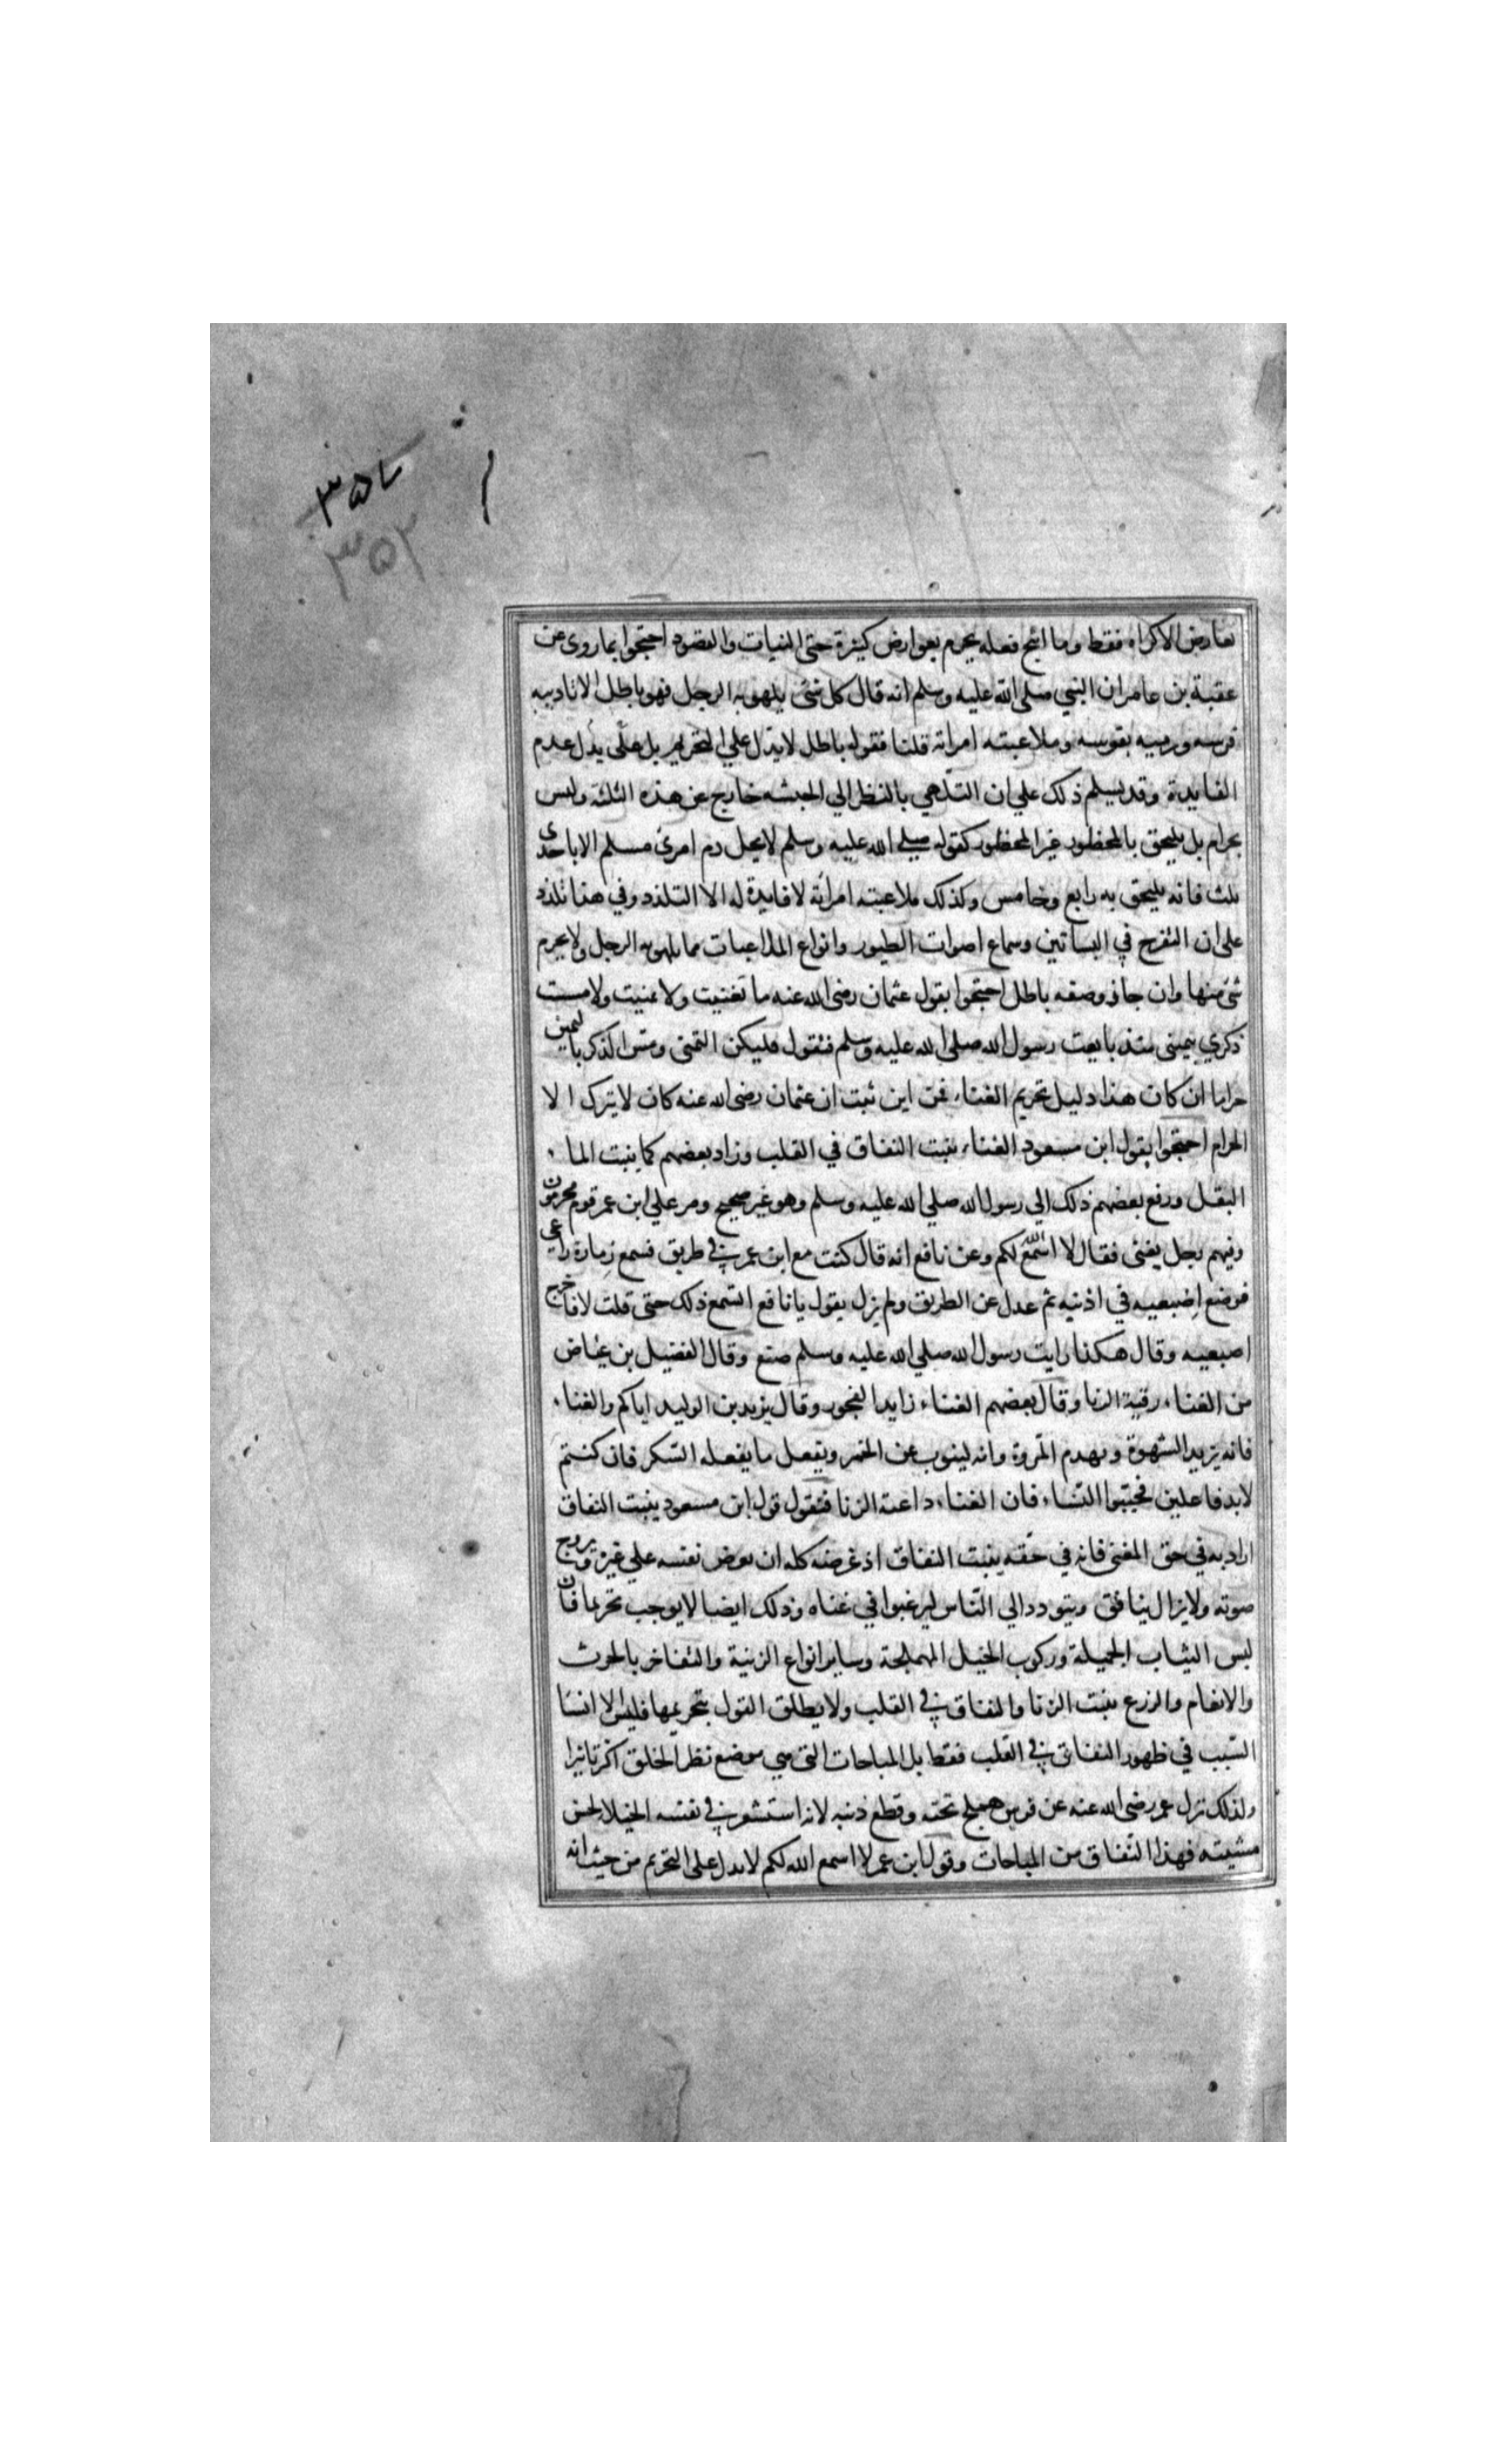 ٣٥٢
٣٥٢
بعارض الاكراه فقط وما ابيح فعله يحرم بعوارض كثيرة حتى النيات والقصود احتجوا بما روى عن
عقبة بن عامر ان النبي صلى الله عليه وسلم انه قال كل شئ يلهو به الرجل فهو باطل الا تاديبه
فرسه ورميه بقوسه وملاعبته امراته قلنا فقوله باطل لا يدل علي التحريم بل يدل علي عدم
الفايدة وقد يسلم ذلك علي ان التلهي بالنظر الي الحبشه خارج عن هذه الثلثة وليس
بحرام بل يلحق بالمحظور غير المحظور كقوله صلي الله عليه وسلم لا يحل دم امرئ مسلم الا باحدى
ثلث فانه يلحق به رابع وخامس وكذلك ملاعبته امرأته لا فايدة له الا التلذذ وفي هذا تلذذ
على ان التفرج في البساتين وسماع اصوات الطيور وانواع المداعبات مما يلهو به الرجل ولا يحرم
شئ منها وان جاز وصفه باطل احتجوا بقول عثمان رضى الله عنه ما تغنيت ولا تمنيت ولا مسست
ذكري بيمينى منذ بايعت رسول الله صلى الله عليه وسلم فنقول فليكن التمنى ومس الذكر باليمين
حراما ان كان هذا دليل تحريم الغناء فمن اين ثبت ان عثمان رضى الله عنه كان لا يترك الا
الحرام احتجوا بقول ابن مسعود الغناء ينبت النفاق في القلب وزاد بعضهم كما ينبت الماء
البقل ورفع بعضهم ذلك الي رسول الله صلي الله عليه وسلم وهو غير صحيح ومر علي ابن عمر قوم محرمون
وفيهم رجل يغنى فقال لا اسمع الله لكم وعن نافع انه قال كنت مع ابن عمر في طريق فسمع زمارة راعى
فوضع اصبعيه في اذنيه ثم عدل عن الطريق ولم يزل يقول يا نافع اتسمع ذلك حتى قلت لا فاخرج
اصبعيه وقال هكذا رايت رسول الله صلي الله عليه وسلم صنع وقال الفضيل بن عياض
من الغناء رقية الزنا وقال بعضهم الغناء زايد الفجور وقال يزيد بن الوليد اياكم والغناء
فانه يزيد الشهوة ويهدم المروة وانه لينوب عن الخمر ويفعل ما يفعله السكر فان كنتم
لا بد فاعلين فجنبوا النساء فان الغناء داعية الزنا فنقول قول ابن مسعود ينبت النفاق
اراد به في حق المغنى فانه في حقه ينبت النفاق اذ غرضه كله ان يعرض نفسه علي غيره ويروج
صوته ولا يزال ينافق ويتودد الي الناس ليرغبوا في غناه وذلك ايضا لا يوجب تحريما فان
لبس الثياب الجميلة وركوب الخيل المهملجة وساير انواع الزينة والتفاخر بالحرث
والانعام والزرع ينبت الزنا والنفاق في القلب ولا يطلق القول بتحريمها فليس لانسا
السبب في ظهور النفاق في القلب فقط بل المباحات التى هي موضع نظر الخلق اكثر تاثيرا
ولذلك نزل عمر رضى الله عنه عن فرس هملج تحته وقطع ذنبه لانه استشعر في نفسه الخيلا لحسن
مشيته فهذا النفاق من المباحات وقول ابن عمر لا اسمع الله لكم لا يدل على التحريم من حيث انه